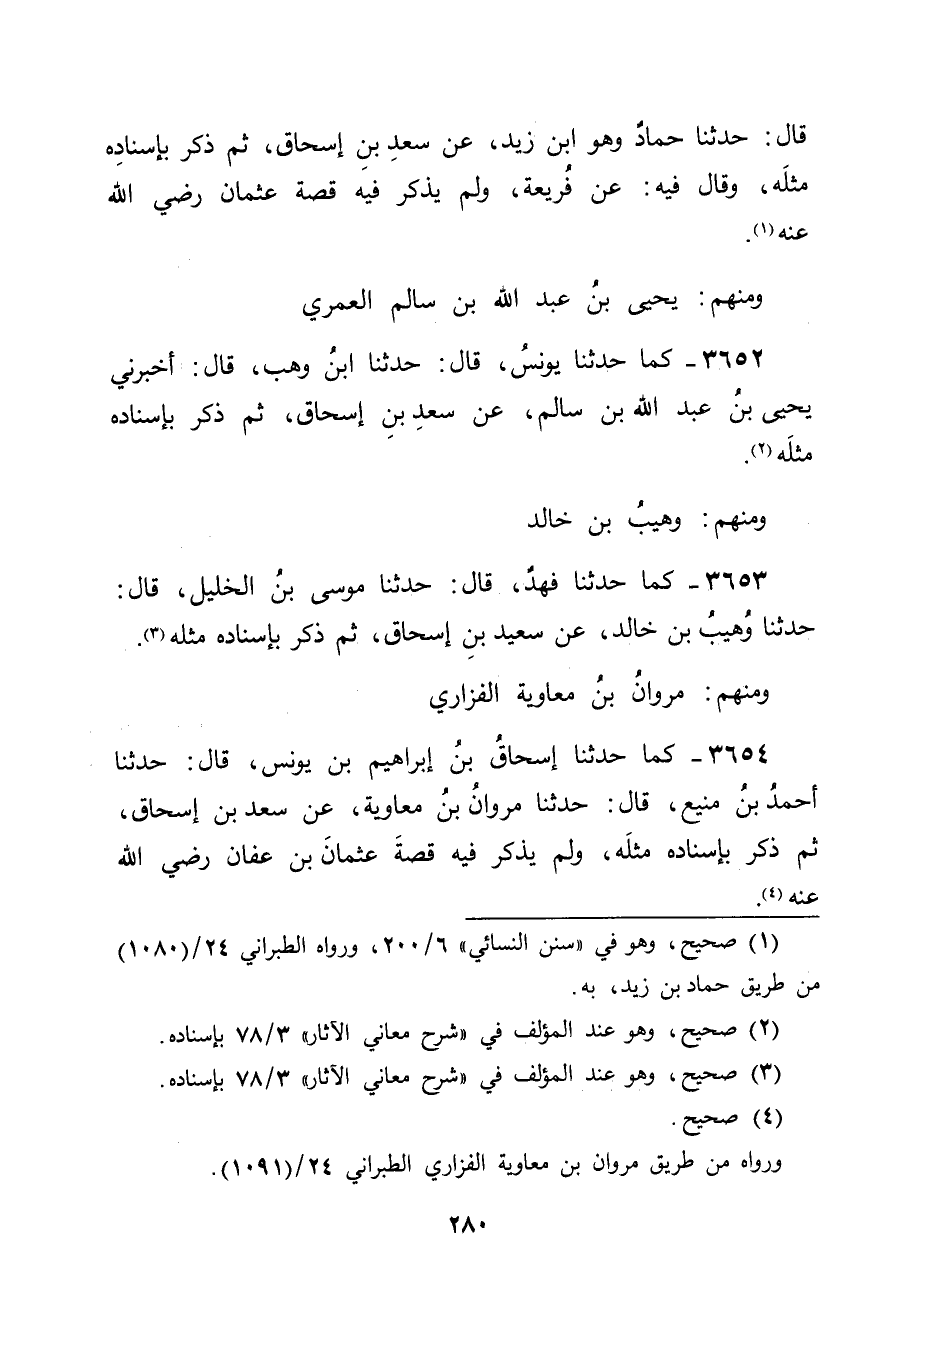 قال: حدثنا حمادٌ وهو ابن زيد، عن سعدِ بنِ إسحاق، ثم ذكر بإسنادِه
مثلَه، وقال فيه: عن فُريعة، ولم يذكر فيه قصة عثمان رضي الله
عنه(١).
ومنهم: يحيى بنُ عبد الله بن سالم العمري
٣٦٥٢ـ كما حدثنا يونسُ، قال: حدثنا ابنُ وهب، قال: أخبرني
يحيى بنُ عبد الله بن سالم، عن سعدِ بنِ إسحاق، ثم ذكر بإسناده
مثلَه(٢).
ومنهم: وهيبُ بن خالد
٣٦٥٣ـ كما حدثنا فهدٌ، قال: حدثنا موسى بنُ الخليل، قال:
حدثنا وُهيبُ بن خالد، عن سعيد بنِ إسحاق، ثم ذكر بإسناده مثله(٣).
ومنهم: مروانُ بنُ معاوية الفزاري
٣٦٥٤ـ كما حدثنا إسحاقُ بنُ إبراهيم بن يونس، قال: حدثنا
أحمدُ بنُ منيع، قال: حدثنا مروانُ بنُ معاوية، عن سعد بن إسحاق،
ثم ذكر بإسناده مثلَه، ولم يذكر فيه قصةَ عثمانَ بن عفان رضي الله
عنه(٤).
(١) صحيح، وهو في «سنن النسائي» ٢٠٠/٦، ورواه الطبراني ٢٤/(١٠٨٠)
من طريق حماد بن زيد، به.
(٢) صحيح، وهو عند المؤلف في «شرح معاني الآثار» ٧٨/٣ بإسناده.
(٣) صحيح، وهو عند المؤلف في «شرح معاني الآثار» ٧٨/٣ بإسناده.
(٤) صحيح.
ورواه من طريق مروان بن معاوية الفزاري الطبراني ٢٤/(١٠٩١).
٢٨٠